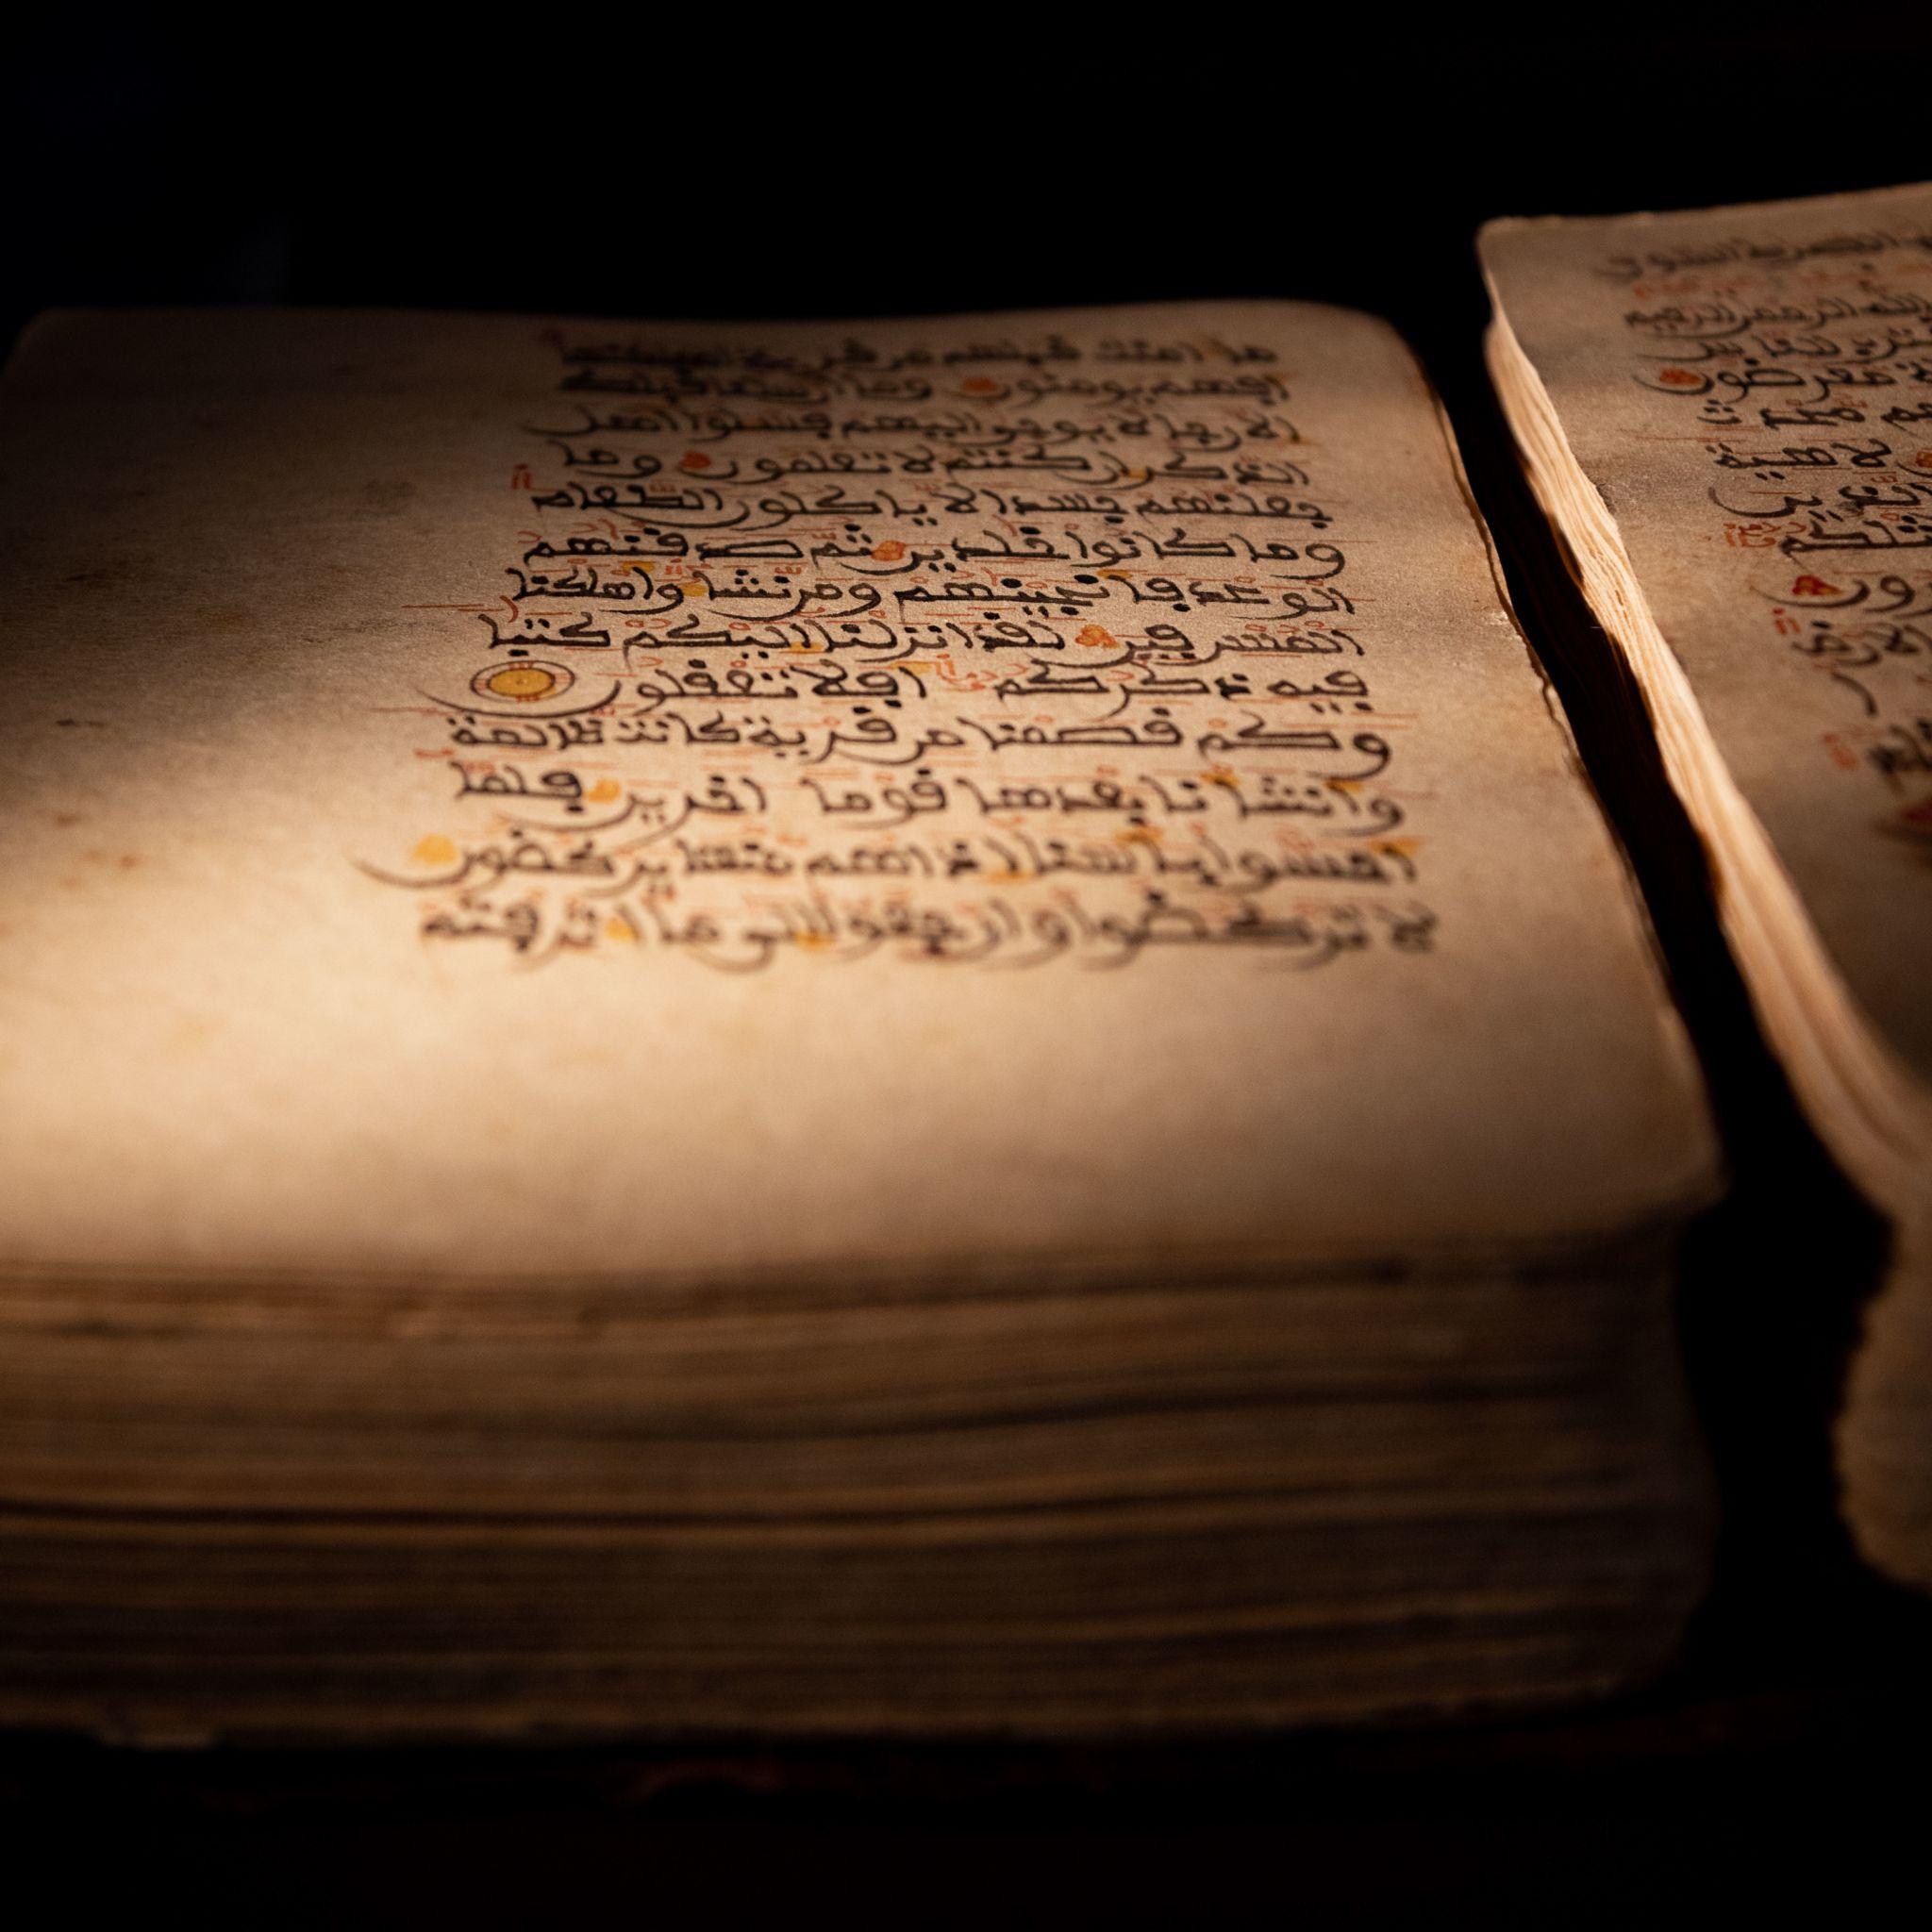 الله الرحمن الرحيم
معرضون
لاهية
ما امنت قبلهم من قرية اهلكنها
افهم يومنون وما ارسلنا قبلك
الا رجالا يوحى اليهم فسلوا اهل
الذكر ان كنتم لا تعلمون وما
جعلنهم جسدا لا ياكلون الطعام
وما كانوا خلدين ثم صدقنهم
الوعد فانجينهم ومن نشا واهلكنا
المسرفين لقد انزلنا اليكم كتبا
فيه ذكركم افلا تعقلون
وكم قصمنا من قرية كانت ظالمة
وانشانا بعدها قوما اخرين فلما
احسوا باسنا اذا هم منها يركضون
لا تركضوا وارجعوا الى ما اترفتم